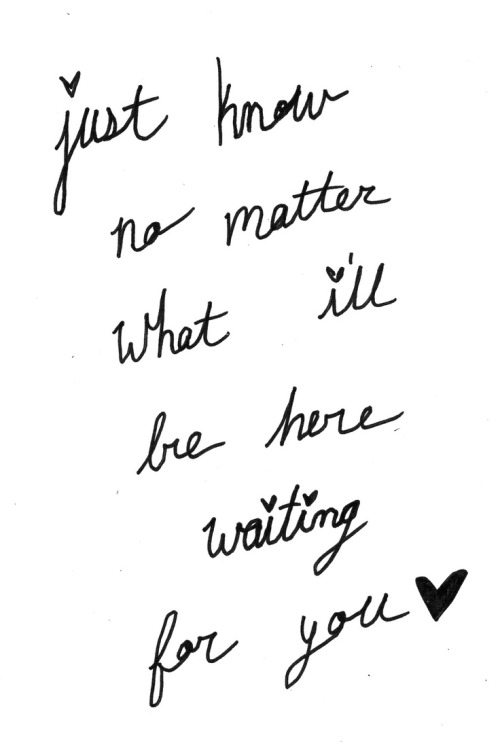 just know
no matter
what i'll
be here
waiting
for you♥